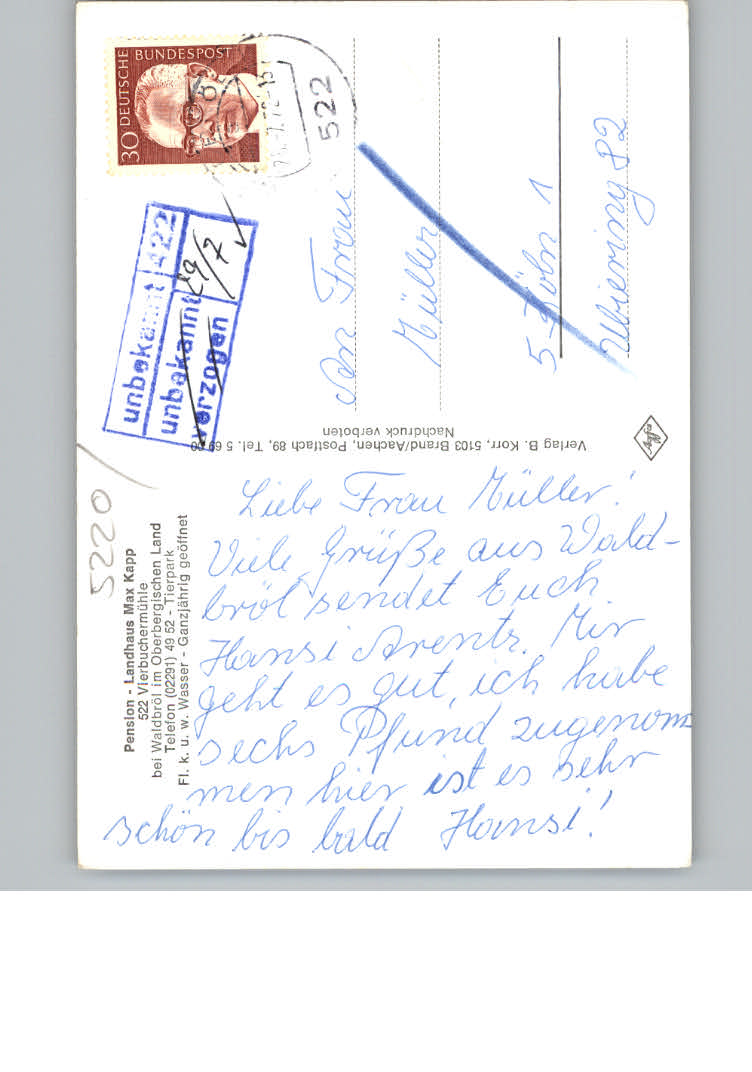 Pension - Landhaus Max Kapp
522 Vierbuchermühle
bei Waldbröl im Oberbergischen Land
Telefon (02291) 49 52 - Tierpark
Fl. k. u. w. Wasser - Ganzjährig geöffnet
5220
Liebe Frau Müller!
Viele Grüße aus Wald-
bröl sendet Euch
Hansi Arentz. Mir
geht es gut, ich habe
sechs Pfund zugenom
men hier ist es sehr
schön bis bald Hansi!
Verlag B. Korr, 5103 Brand/Aachen, Postfach 89, Tel. 5 69 00
Nachdruck verboten
Agfa
30 DEUTSCHE BUNDESPOST
522
unbekannt 422
unbekannt 29/7
verzogen
An Frau
Müller
5 Köln 1
Ubierring 82